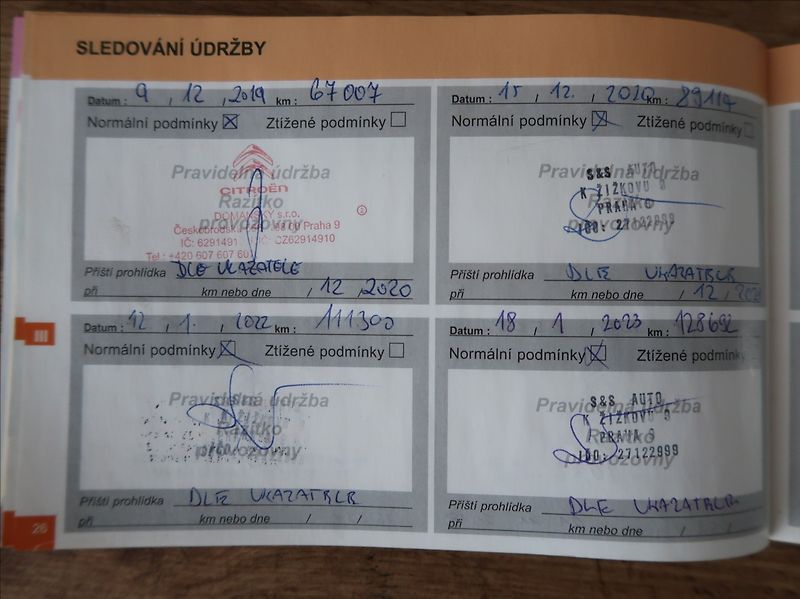 SLEDOVÁNÍ ÚDRŽBY
Datum : 9 , 12 , 2019 km : 67007
Normální podmínky ☒ Ztížené podmínky ☐
Pravidelná údržba
Razítko
provozovny
CITROËN
DOMANSKÝ s.r.o.
Praha 9
IČ: 6291491 CZ62914910
Tel : +420 607 607 607
Příští prohlídka DLE UKAZATELE
při km nebo dne / 12 / 2020
Datum : 15 / 12. / 2020 km : 89114
Normální podmínky ☒ Ztížené podmínky ☐
Pravidelná údržba
Razítko
provozovny
S&S AUTO
K ŽIŽKOVU 9
PRAHA 9
IČO: 27122999
Příští prohlídka DLE UKAZATELE
při km nebo dne / 12 /
Datum : 12 / 1. / 2022 km : 111300
Normální podmínky ☒ Ztížené podmínky ☐
Pravidelná údržba
Razítko
provozovny
Příští prohlídka DLE UKAZATELE
při km nebo dne / /
Datum : 18 / 1 / 2023 km : 128692
Normální podmínky ☒ Ztížené
Pravidelná údržba
Razítko
provozovny
S&S AUTO
K ŽIŽKOVU 9
PRAHA 9
IČO: 27122999
Příští prohlídka DLE UKAZATELE
při km nebo dne / /
III
26